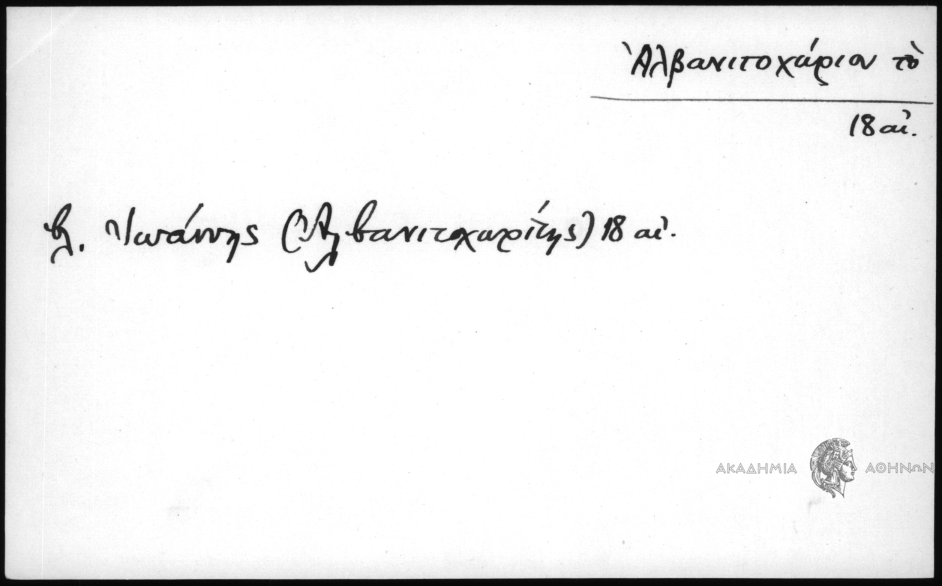 Ἀλβανιτοχώριον τὸ
18 αἰ.
βλ. Ἰωάννης (Ἀλβανιτοχωρίτης) 18 αἰ.
ΑΚΑΔΗΜΙΑ ΑΘΗΝΩΝ